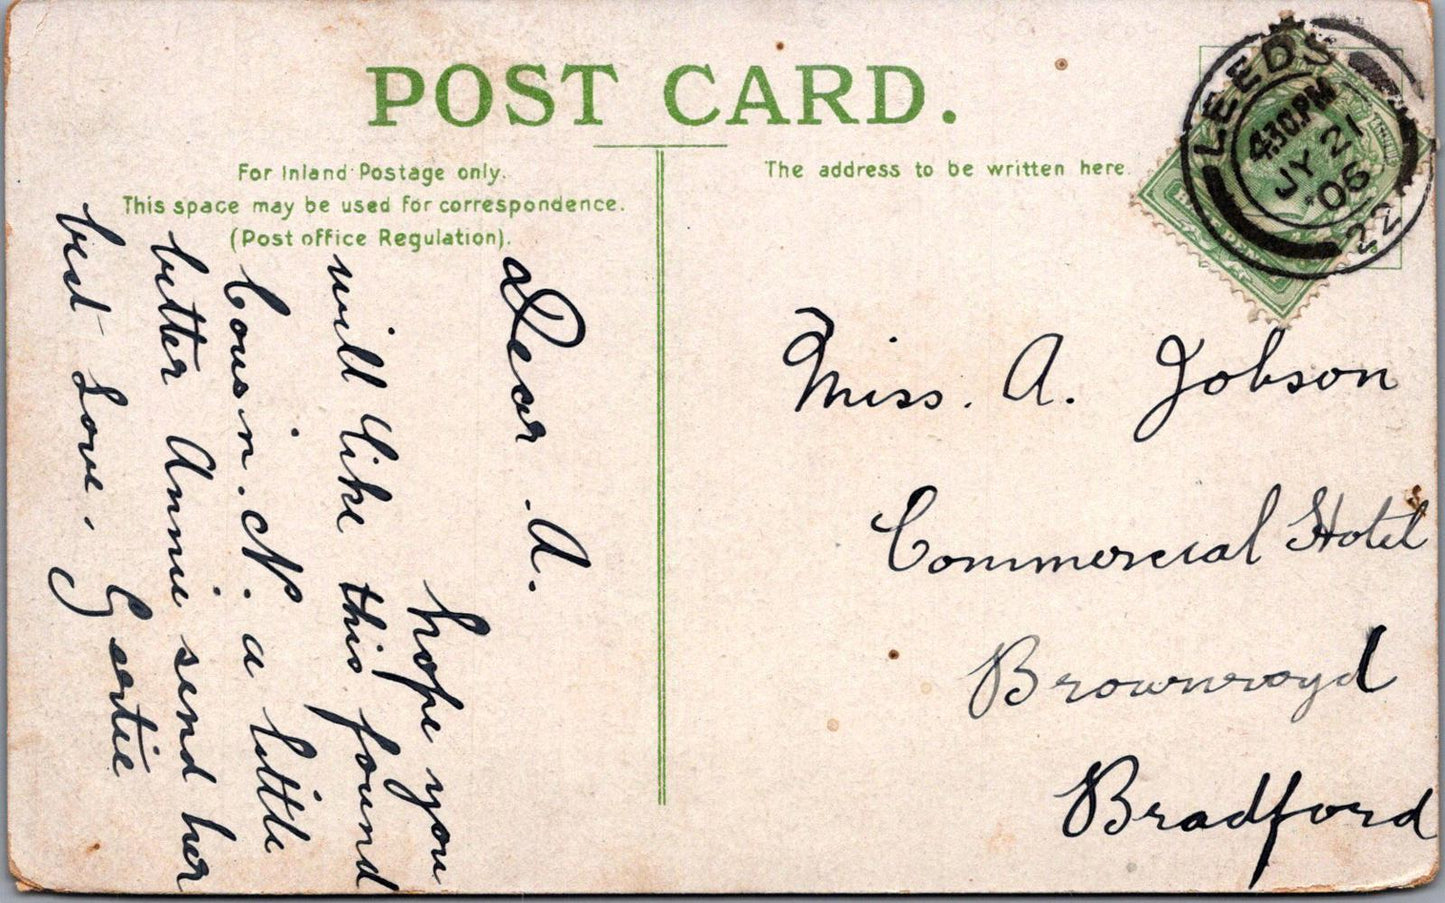 POST CARD.
For Inland Postage only.
This space may be used for correspondence.
(Post office Regulation).
The address to be written here.
LEEDS
4.30.PM
JY 21
06
22
HALFPENNY
Dear A.
hope you
will like this found
Cousin. N. a little
better Annie send her
best Love.
Gertie
Miss. A. Jobson
Commercial Hotel
Brownroyd
Bradford